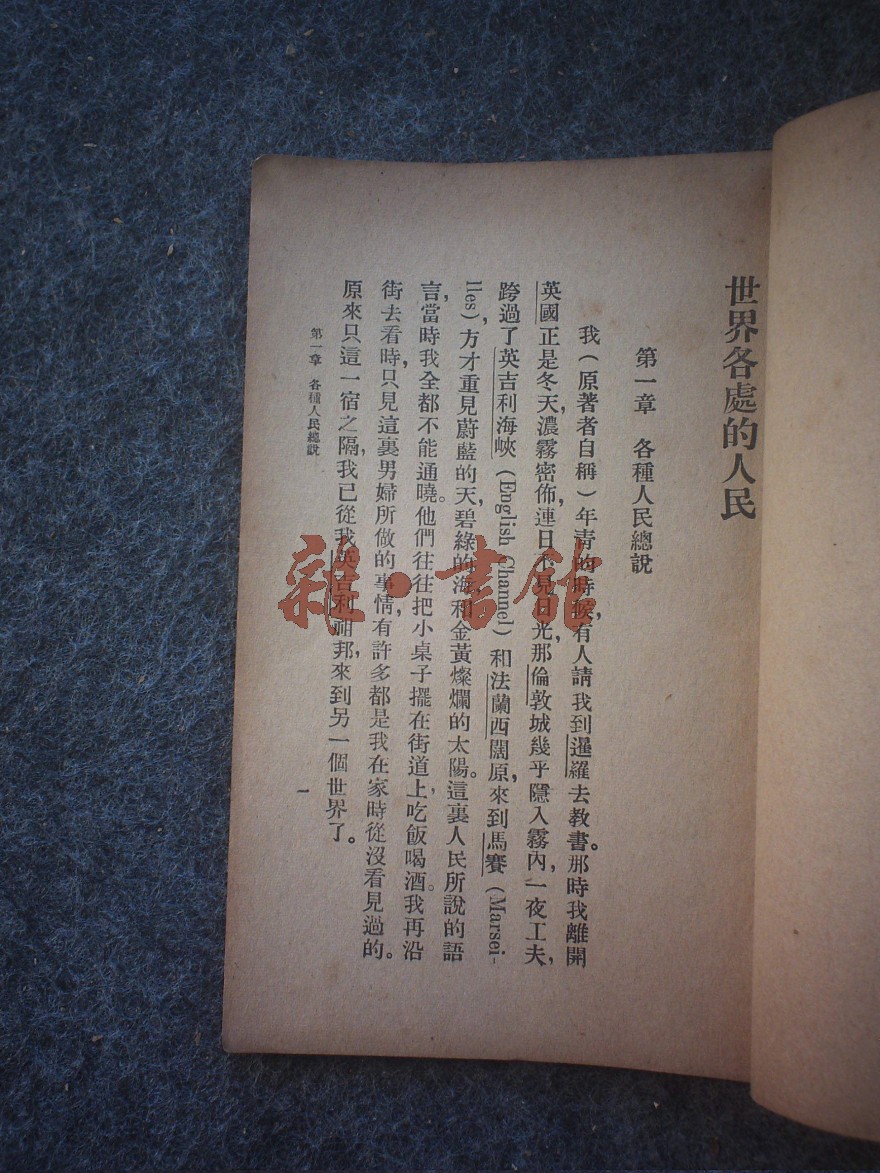 世界各處的人民
第一章 各種人民總說
我(原著者自稱)年青的時候,有人請我到暹羅去教書。那時我離開
英國正是冬天,濃霧密佈,連日不見日光,那倫敦城幾乎隱入霧內,一夜工夫,
跨過了英吉利海峽(English Channel)和法蘭西闊原,來到馬賽(Marsei-
lles),方才重見蔚藍的天,碧綠的海和金黃燦爛的太陽。這裏人民所說的語
言,當時我全都不能通曉。他們往往把小桌子擺在街道上,吃飯喝酒。我再沿
街去看時,只見這裏男婦所做的事情,有許多都是我在家時從沒看見過的。
原來只這一宿之隔,我已從我英吉利祖邦,來到另一個世界了。
第一章 各種人民總說
一
雜·書館